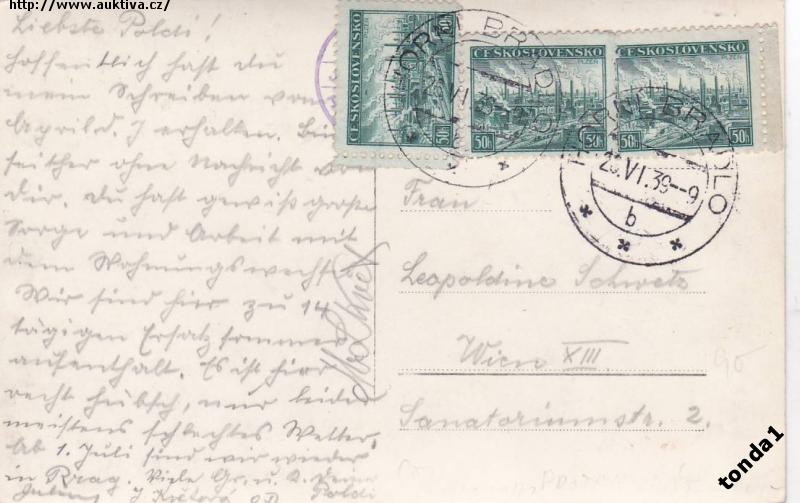 http://www.auktiva.cz/
Liebste Poldi!
Hoffentlich hast du
mein Schreiben vom
April d. J erhalten. Bin
seither ohne Nachricht von
Dir. Du hast gewiß große
Sorge und Arbeit mit
dem Wohnungswechsel
Wir sind hier zu 14
tägigen Ersatz sommer
aufenthalt. Es ist hier
recht hübsch, nur leider
meistens schlechtes Wetter.
Ab 1. Juli sind wir wieder
in Prag. Viele Gr. u. K. Deine
Poldi
ČESKOSLOVENSKO
50h
ČESKOSLOVENSKO
PLZEŇ
50h
ČESKOSLOVENSKO
PLZEŇ
50h
HORNÍ BRADLO
23.VI.39-9
b
Frau
Leopoldine Schwetz
Wien XIII
Sanatoriumstr. 2.
90
tonda1